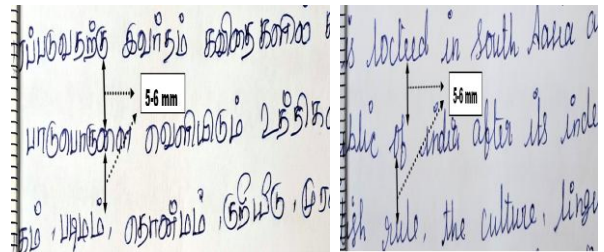 ப்படுவதற்கு இவர்தம் கவிதைகளில்
5-6 mm
பாடுபொருளை வெளியிடும் உத்திக
படிமம், தொன்மம், குறியீடு, முர
is locteed in South Aasia
5-6 mm
blic of india after its inde
ish rule, the culture, lingu